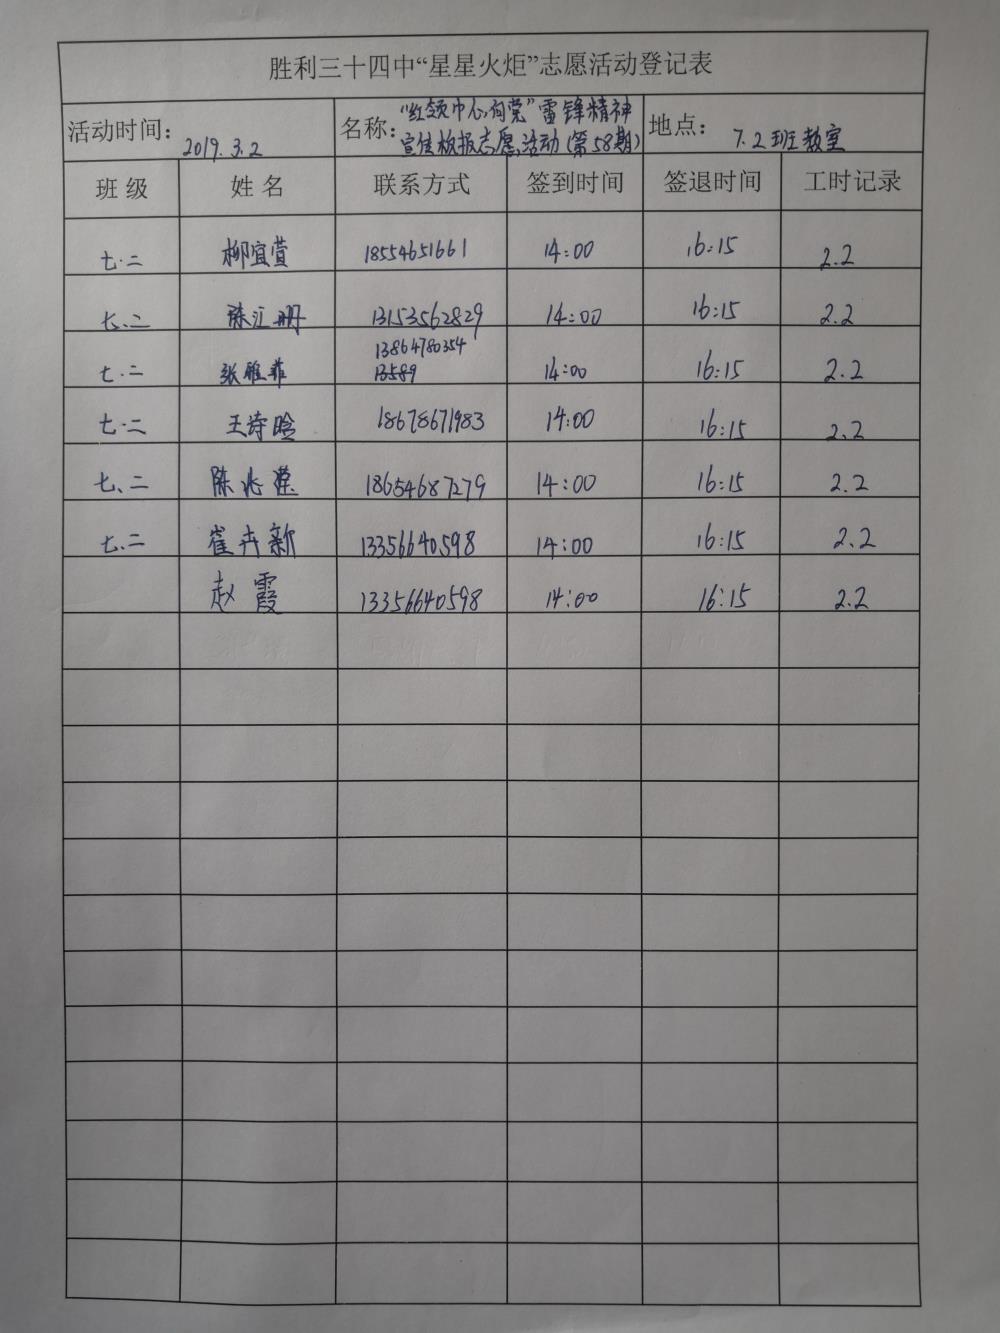 胜利三十四中“星星火炬”志愿活动登记表
活动时间： 2019.3.2 名称： “红领巾心向党”雷锋精神 地点： 7.2班教室
宣传板报志愿活动(第58期)
班级 姓名 联系方式 签到时间 签退时间 工时记录
七.二 柳宜萱 18554651661 14:00 16:15 2.2
七.二 陈汇册 13153562829 14:00 16:15 2.2
13864780354
七.二 张雅菲 13589 14:00 16:15 2.2
七.二 王诗晗 18678671983 14:00 16:15 2.2
七、二 陈兆滢 18654687279 14:00 16:15 2.2
七.二 崔卉新 13356640598 14:00 16:15 2.2
赵霞 13356640598 14:00 16:15 2.2